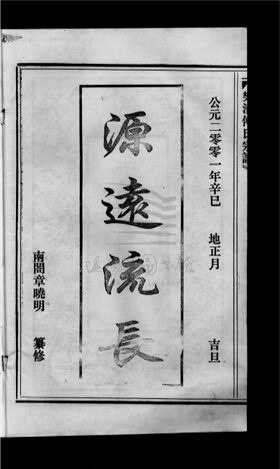 公元二零零一年辛巳 地正月 吉旦
源遠流長
南閣章曉明 纂修